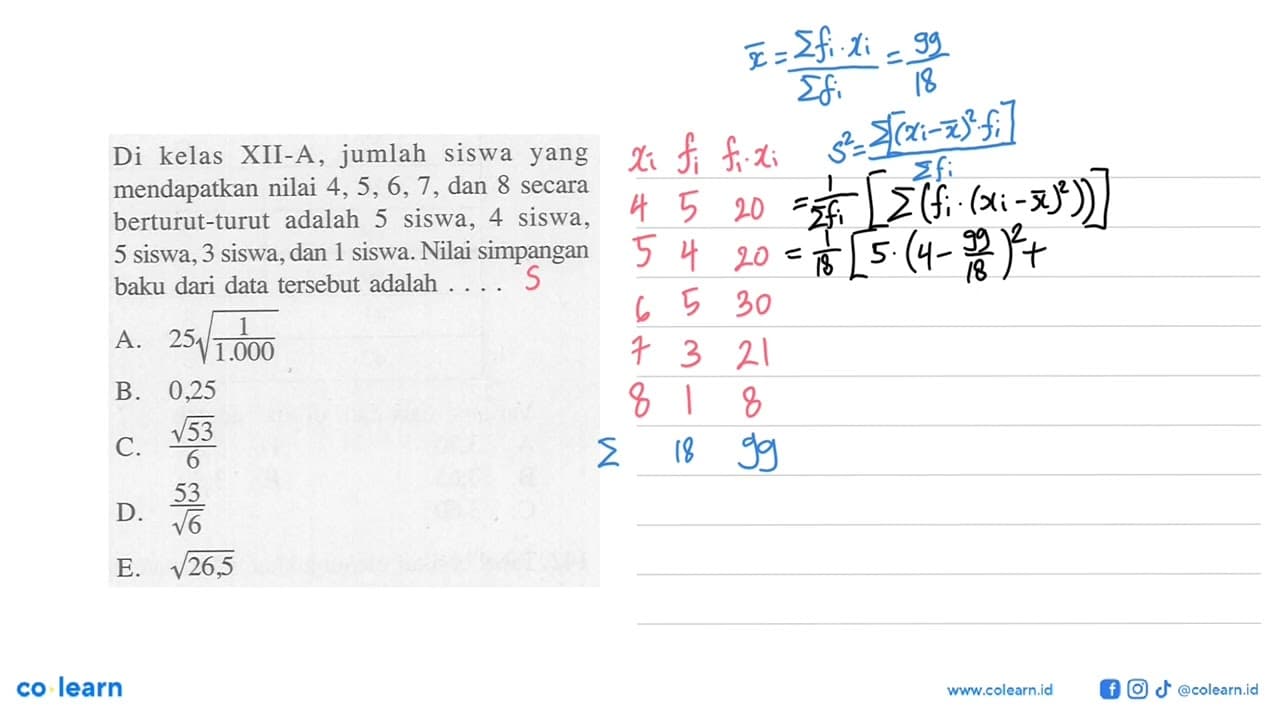 x̄ = Σfᵢ·xᵢ / Σfᵢ = 99/18
Di kelas XII-A, jumlah siswa yang
mendapatkan nilai 4, 5, 6, 7, dan 8 secara
berturut-turut adalah 5 siswa, 4 siswa,
5 siswa, 3 siswa, dan 1 siswa. Nilai simpangan
baku dari data tersebut adalah . . . . S
A. 25√(1/1.000)
B. 0,25
C. √53/6
D. 53/√6
E. √26,5
xᵢ fᵢ fᵢ·xᵢ
4 5 20
5 4 20
6 5 30
7 3 21
8 1 8
Σ 18 99
S² = Σ[(xᵢ-x̄)²·fᵢ] / Σfᵢ
= 1/Σfᵢ [Σ(fᵢ·(xᵢ-x̄)²))]
= 1/18 [5·(4-99/18)²+
co learn
www.colearn.id
@colearn.id